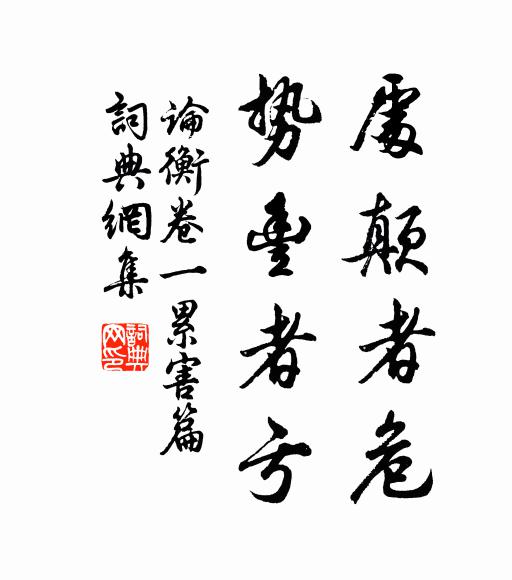 處顛者危
勢豐者亏
论衡卷一累害篇
詞典網集
詞典网印